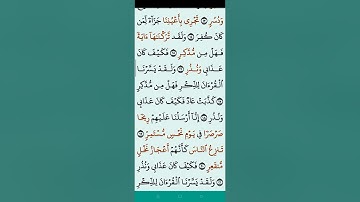 وَدُسُرٍ ۝١٣ تَجْرِى بِأَعْيُنِنَا جَزَآءً لِّمَن
كَانَ كُفِرَ ۝١٤ وَلَقَد تَّرَكْنَٰهَآ ءَايَةً
فَهَلْ مِن مُّدَّكِرٍ ۝١٥ فَكَيْفَ كَانَ
عَذَابِى وَنُذُرِ ۝١٦ وَلَقَدْ يَسَّرْنَا
ٱلْقُرْءَانَ لِلذِّكْرِ فَهَلْ مِن مُّدَّكِرٍ ۝١٧
كَذَّبَتْ عَادٌ فَكَيْفَ كَانَ عَذَابِى
وَنُذُرِ ۝١٨ إِنَّآ أَرْسَلْنَا عَلَيْهِمْ رِيحًا
صَرْصَرًا فِى يَوْمِ نَحْسٍ مُّسْتَمِرٍّ ۝١٩
تَنزِعُ ٱلنَّاسَ كَأَنَّهُمْ أَعْجَازُ نَخْلٍ
مُّنقَعِرٍ ۝٢٠ فَكَيْفَ كَانَ عَذَابِى وَنُذُرِ ۝٢١
وَلَقَدْ يَسَّرْنَا ٱلْقُرْءَانَ لِلذِّكْرِ